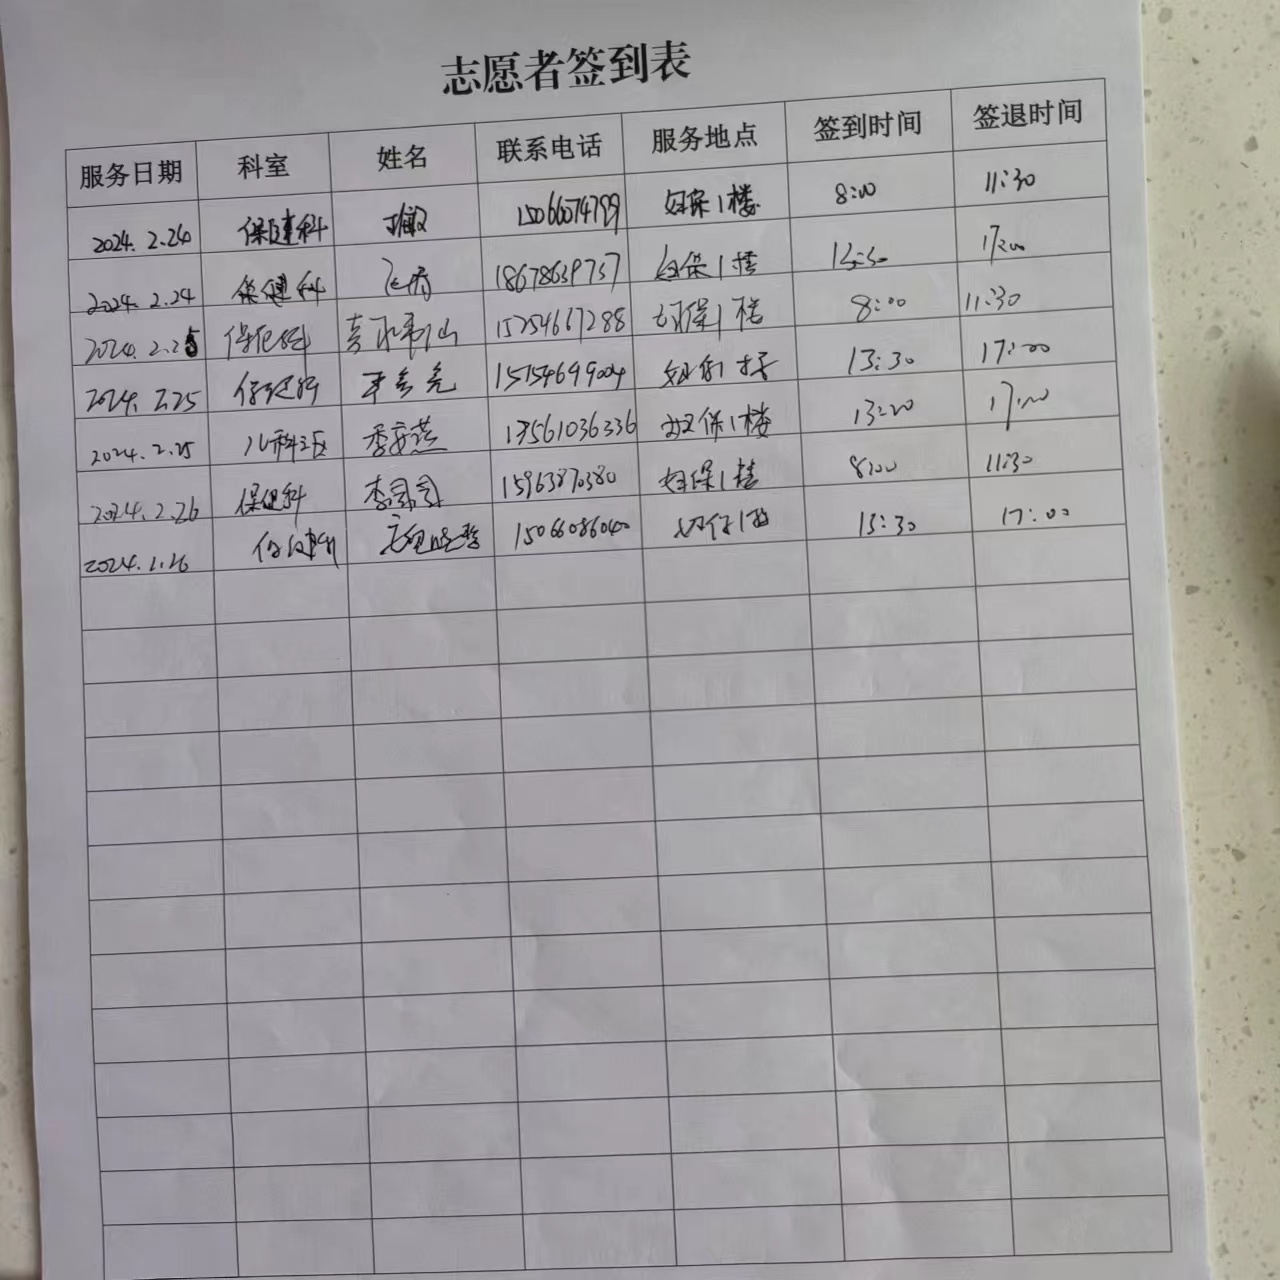 志愿者签到表
服务日期 科室 姓名 联系电话 服务地点 签到时间 签退时间
2024.2.24 保健科 15066074799 妇保1楼 8:00 11:30
2024.2.24 保健科 18678639737 妇保1楼 13:30 17:00
2024.2.25 保健科 15254667288 妇保1楼 8:00 11:30
2024.2.25 保健科 15154699004 妇保1楼 13:30 17:00
2024.2.25 儿科三区 季安燕 13561036336 妇保1楼 13:20 17:00
2024.2.26 保健科 李司司 15963870380 妇保1楼 8:00 11:30
保健科 15066086040 妇保1楼 13:30 17:00